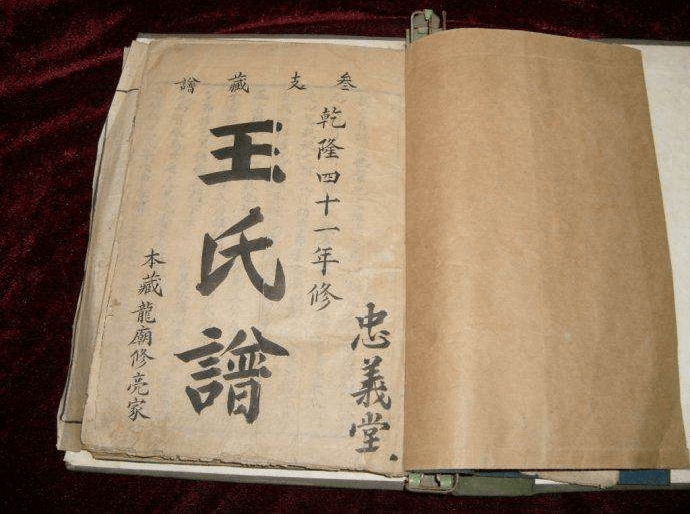 叁支藏譮
忠義堂
乾隆四十一年修
王氏譜
本藏龍廟修亮家